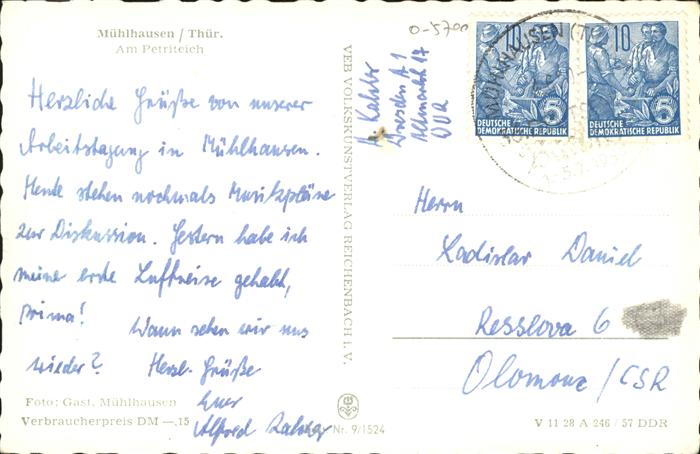 Mühlhausen / Thür.
Am Petriteich
Herzliche Grüße von unserer
Arbeitstagung in Mühlhausen.
Heute stehen nochmals Musikpläne
zur Diskussion. Gestern habe ich
meine erste Luftreise gehabt,
prima!
Wann sehen wir uns
wieder? Herzl. Grüße
Euer
Alfred
Foto: Gast. Mühlhausen
Verbraucherpreis DM —.15
Nr. 9/1524
VEB VOLKSKUNSTVERLAG REICHENBACH I. V.
Dresden A 1
Altmarkt 17
0-5700
MÜHLHAUSEN (TH
10
5
DEUTSCHE
DEMOKRATISCHE REPUBLIK
10
5
DEUTSCHE
DEMOKRATISCHE REPUBLIK
Herrn
Ladislav Daniel
Resslova 6
Olomouc / ČSR
V 11 28 A 246 / 57 DDR